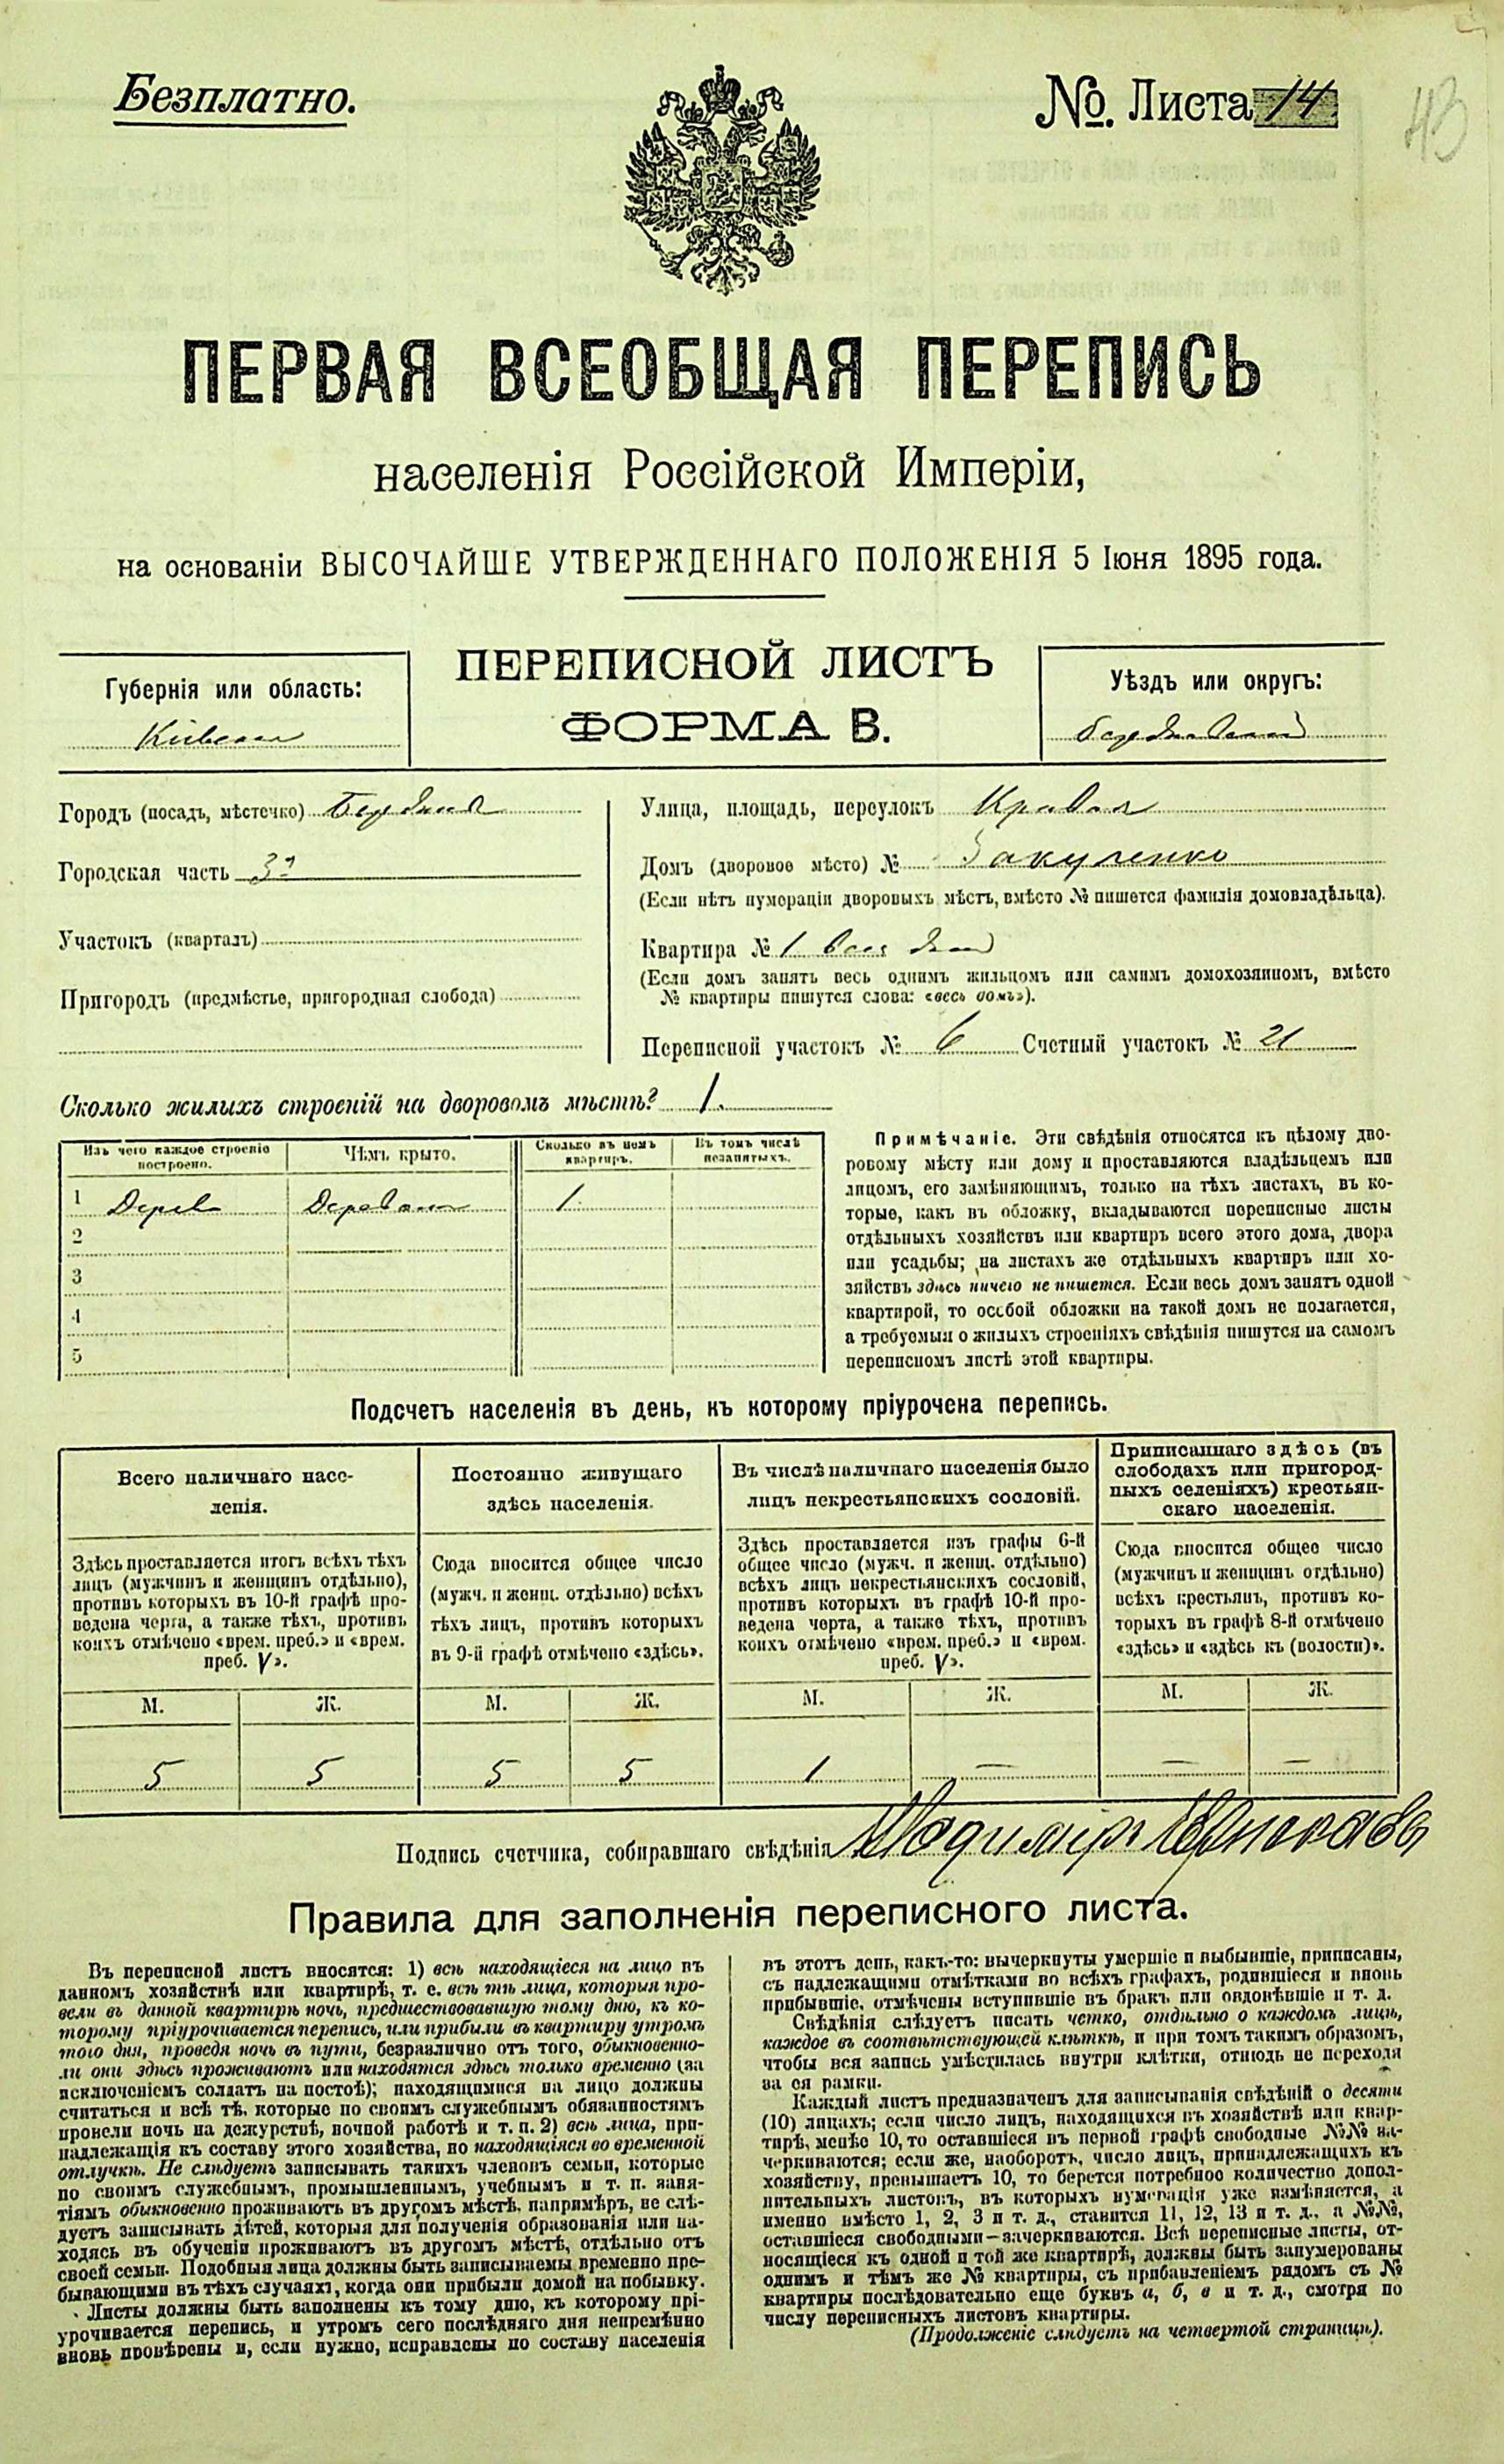 Безплатно.
№. Листа 14
43
ПЕРВАЯ ВСЕОБЩАЯ ПЕРЕПИСЬ
населенія Россійской Имперіи,
на основаніи ВЫСОЧАЙШЕ УТВЕРЖДЕННАГО ПОЛОЖЕНІЯ 5 Іюня 1895 года.
Губернія или область:
Кіевская
ПЕРЕПИСНОЙ ЛИСТЪ
ФОРМА В.
Уѣздъ или округъ:
Городъ (посадъ, мѣстечко)
Городская часть 3я
Участокъ (кварталъ)
Пригородъ (предмѣстье, пригородная слобода)
Улица, площадь, переулокъ
Домъ (дворовое мѣсто) №
(Если нѣтъ нумераціи дворовыхъ мѣстъ, вмѣсто № пишется фамилія домовладѣльца).
Квартира № 1 весь домъ
(Если домъ занятъ весь однимъ жильцомъ или самимъ домохозяиномъ, вмѣсто
№ квартиры пишутся слова: «весь домъ»).
Переписной участокъ № 6 Счетный участокъ № 21
Сколько жилыхъ строеній на дворовомъ мѣстѣ? 1.
Изъ чего каждое строеніе
построено.
Чѣмъ крыто.
Сколько въ немъ
квартиръ.
Въ томъ числѣ
незанятыхъ.
1 Дерев 1
2
3
4
5
Примѣчаніе. Эти свѣдѣнія относятся къ цѣлому дво-
ровому мѣсту или дому и проставляются владѣльцемъ или
лицомъ, его замѣняющимъ, только на тѣхъ листахъ, въ ко-
торые, какъ въ обложку, вкладываются переписные листы
отдѣльныхъ хозяйствъ или квартиръ всего этого дома, двора
или усадьбы; на листахъ же отдѣльныхъ квартиръ или хо-
зяйствъ здѣсь ничего не пишется. Если весь домъ занятъ одной
квартирой, то особой обложки на такой домъ не полагается,
а требуемыя о жилыхъ строеніяхъ свѣдѣнія пишутся на самомъ
переписномъ листѣ этой квартиры.
Подсчетъ населенія въ день, къ которому пріурочена перепись.
Всего наличнаго насе-
ленія.
Здѣсь проставляется итогъ всѣхъ тѣхъ
лицъ (мужчинъ и женщинъ отдѣльно),
противъ которыхъ въ 10-й графѣ про-
ведена черта, а также тѣхъ, противъ
коихъ отмѣчено «врем. преб.» и «врем.
преб. V».
Постоянно живущаго
здѣсь населенія.
Сюда вносится общее число
(мужч. и женщ. отдѣльно) всѣхъ
тѣхъ лицъ, противъ которыхъ
въ 9-й графѣ отмѣчено «здѣсь».
Въ числѣ наличнаго населенія было
лицъ некрестьянскихъ сословій.
Здѣсь проставляется изъ графы 6-й
общее число (мужч. и женщ. отдѣльно)
всѣхъ лицъ некрестьянскихъ сословій,
противъ которыхъ въ графѣ 10-й про-
ведена черта, а также тѣхъ, противъ
коихъ отмѣчено «врем. преб.» и «врем.
преб. V».
Приписаннаго здѣсь (въ
слободахъ или пригород-
ныхъ селеніяхъ) крестьян-
скаго населенія.
Сюда вносится общее число
(мужчинъ и женщинъ отдѣльно)
всѣхъ крестьянъ, противъ ко-
торыхъ въ графѣ 8-й отмѣчено
«здѣсь» и «здѣсь къ (волости)».
М. Ж. М. Ж. М. Ж. М. Ж.
5 5 5 5 1 — — —
Подпись счетчика, собиравшаго свѣдѣнія
Правила для заполненія переписного листа.
Въ переписной листъ вносятся: 1) всѣ находящіеся на лицо въ
данномъ хозяйствѣ или квартирѣ, т. е. всѣ тѣ лица, которыя про-
вели въ данной квартирѣ ночь, предшествовавшую тому дню, къ ко-
торому пріурочивается перепись, или прибыли въ квартиру утромъ
того дня, проведя ночь въ пути, безразлично отъ того, обыкновенно-
ли они здѣсь проживаютъ или находятся здѣсь только временно (за
исключеніемъ солдатъ на постоѣ); находящимися на лицо должны
считаться и всѣ тѣ, которые по своимъ служебнымъ обязанностямъ
провели ночь на дежурствѣ, ночной работѣ и т. п. 2) всѣ лица, при-
надлежащія къ составу этого хозяйства, но находящіяся во временной
отлучкѣ. Не слѣдуетъ записывать такихъ членовъ семьи, которые
по своимъ служебнымъ, промышленнымъ, учебнымъ и т. п. заня-
тіямъ обыкновенно проживаютъ въ другомъ мѣстѣ, напримѣръ, не слѣ-
дуетъ записывать дѣтей, которыя для полученія образованія или на-
ходясь въ обученіи проживаютъ въ другомъ мѣстѣ, отдѣльно отъ
своей семьи. Подобныя лица должны быть записываемы временно пре-
бывающими въ тѣхъ случаяхъ, когда они прибыли домой на побывку.
Листы должны быть заполнены къ тому дню, къ которому прі-
урочивается перепись, и утромъ сего послѣдняго дня непремѣнно
вновь провѣрены и, если нужно, исправлены по составу населенія
въ этотъ день, какъ-то: вычеркнуты умершіе и выбывшіе, приписаны,
съ надлежащими отмѣтками во всѣхъ графахъ, родившіеся и вновь
прибывшіе, отмѣчены вступившіе въ бракъ или овдовѣвшіе и т. д.
Свѣдѣнія слѣдуетъ писать четко, отдѣльно о каждомъ лицѣ,
каждое въ соотвѣтствующей клѣткѣ, и при томъ такимъ образомъ,
чтобы вся запись умѣстилась внутри клѣтки, отнюдь не переходя
за ея рамки.
Каждый листъ предназначенъ для записыванія свѣдѣній о десяти
(10) лицахъ; если число лицъ, находящихся въ хозяйствѣ или квар-
тирѣ, менѣе 10, то оставшіеся въ первой графѣ свободные №№ за-
черкиваются; если же, наоборотъ, число лицъ, принадлежащихъ къ
хозяйству, превышаетъ 10, то берется потребное количество допол-
нительныхъ листовъ, въ которыхъ нумерація уже измѣняется, а
именно вмѣсто 1, 2, 3 и т. д., ставится 11, 12, 13 и т. д., а №№,
оставшіеся свободными—зачеркиваются. Всѣ переписные листы, от-
носящіеся къ одной и той же квартирѣ, должны быть занумерованы
однимъ и тѣмъ же № квартиры, съ прибавленіемъ рядомъ съ №
квартиры послѣдовательно еще буквъ а, б, в и т. д., смотря по
числу переписныхъ листовъ квартиры.
(Продолженіе слѣдуетъ на четвертой страницѣ).